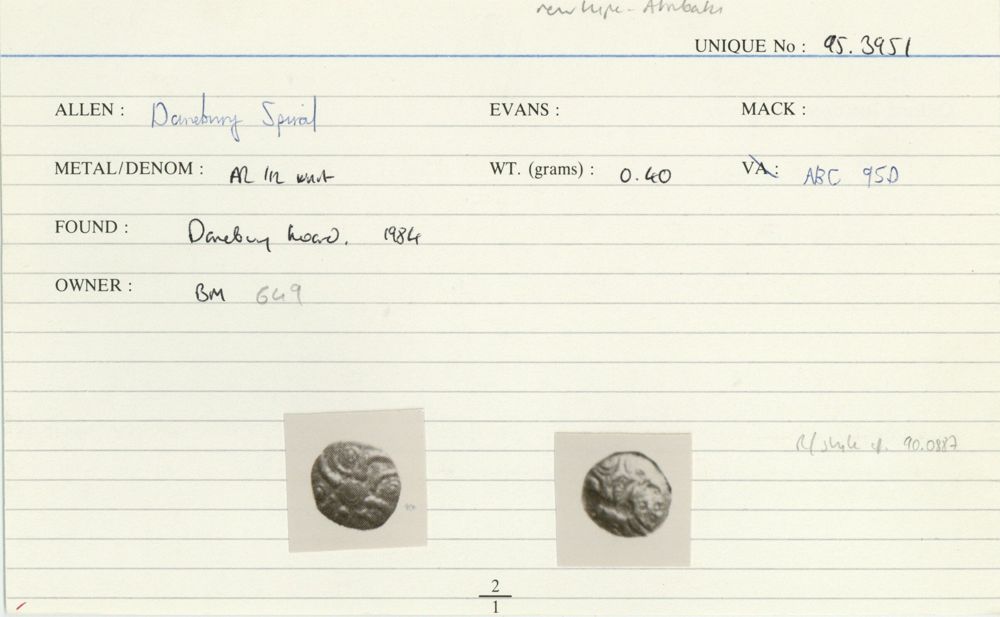 new type - Atrebatic
UNIQUE No : 95.3951
ALLEN : Danebury Spiral EVANS : MACK :
METAL/DENOM : AR 1/2 unit WT. (grams) : 0.40 VA : ABC 950
FOUND : Danebury hoard, 1984
OWNER : BM 649
R/ style cf. 90.0887
2
1